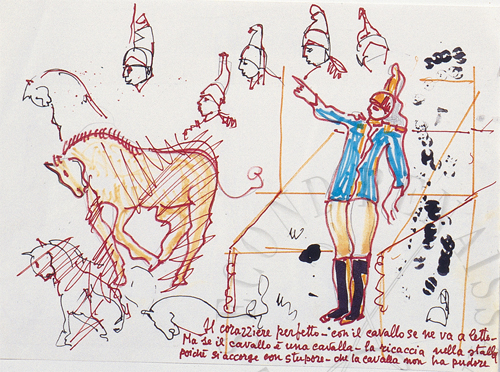 Il corazziere perfetto - con il cavallo se ne va a letto -
Ma se il cavallo è una cavalla - la ricaccia nella stalla
poiché si accorge con stupore - che la cavalla non ha pudore